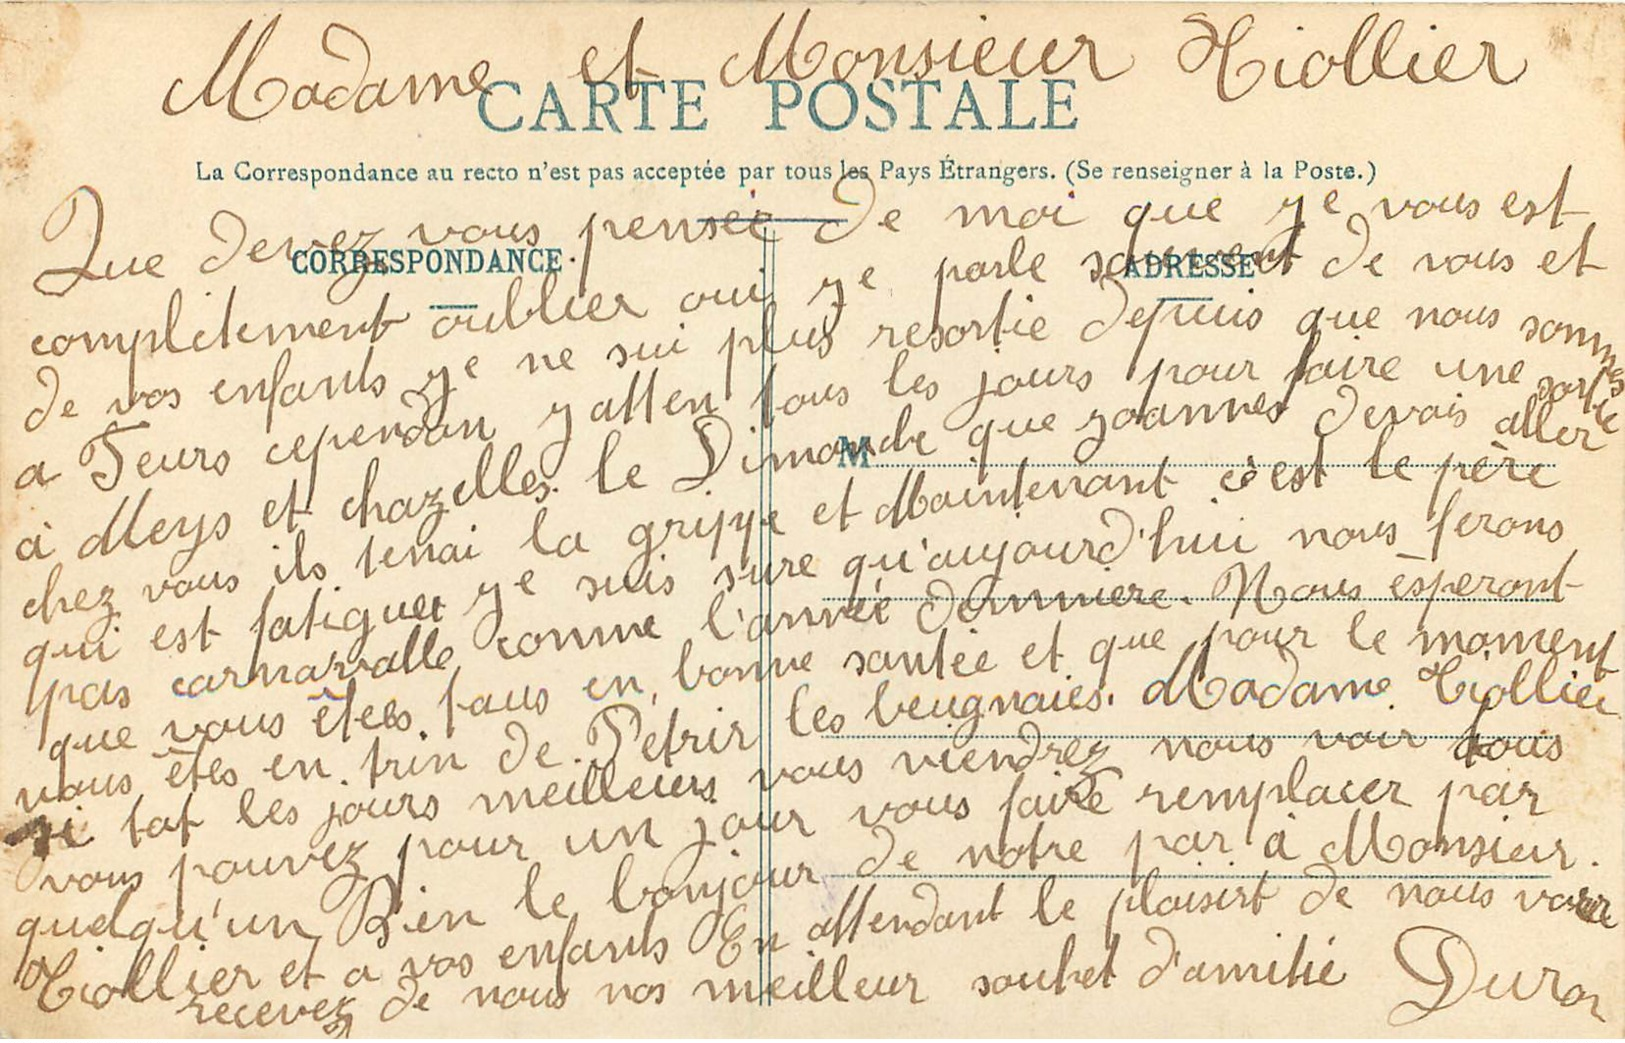 Madame et Monsieur Tiollier
CARTE POSTALE
La Correspondance au recto n'est pas acceptée par tous les Pays Étrangers. (Se renseigner à la Poste.)
CORRESPONDANCE
ADRESSE
M
Que devez vous penseé de moi que ye vous est
complètement oublier oui ye parle souvent de vous et
de vos enfants ye ne sui plus resortie depuis que nous sommes
a Feurs cependan yatten tous les jours pour faire une sortie
à Meys et chazelles. le Dimanche que yoannes devais aller
chez vous ils tenai la grippe et Maintenant c'est le père
qui est fatiguer ye suis sure qu'aujourd'hui nous ferons
pas carnavalle comme l'année dernniere. Nous esperont
que vous êtes tous en bonne santée et que pour le moment
vous êtes en trin de Petrir les beugnaies. Madame Tiollier
si tot les jours meilleurs vous viendrez nous voir tous
vous pouvez pour un jour vous faire remplacer par
quelqu'un Bien le bonjour de notre par à Monsieur.
Tiollier et a vos enfants En attendant le plaisirt de nous voire
recevez de nous nos meilleur souhet d'amitié